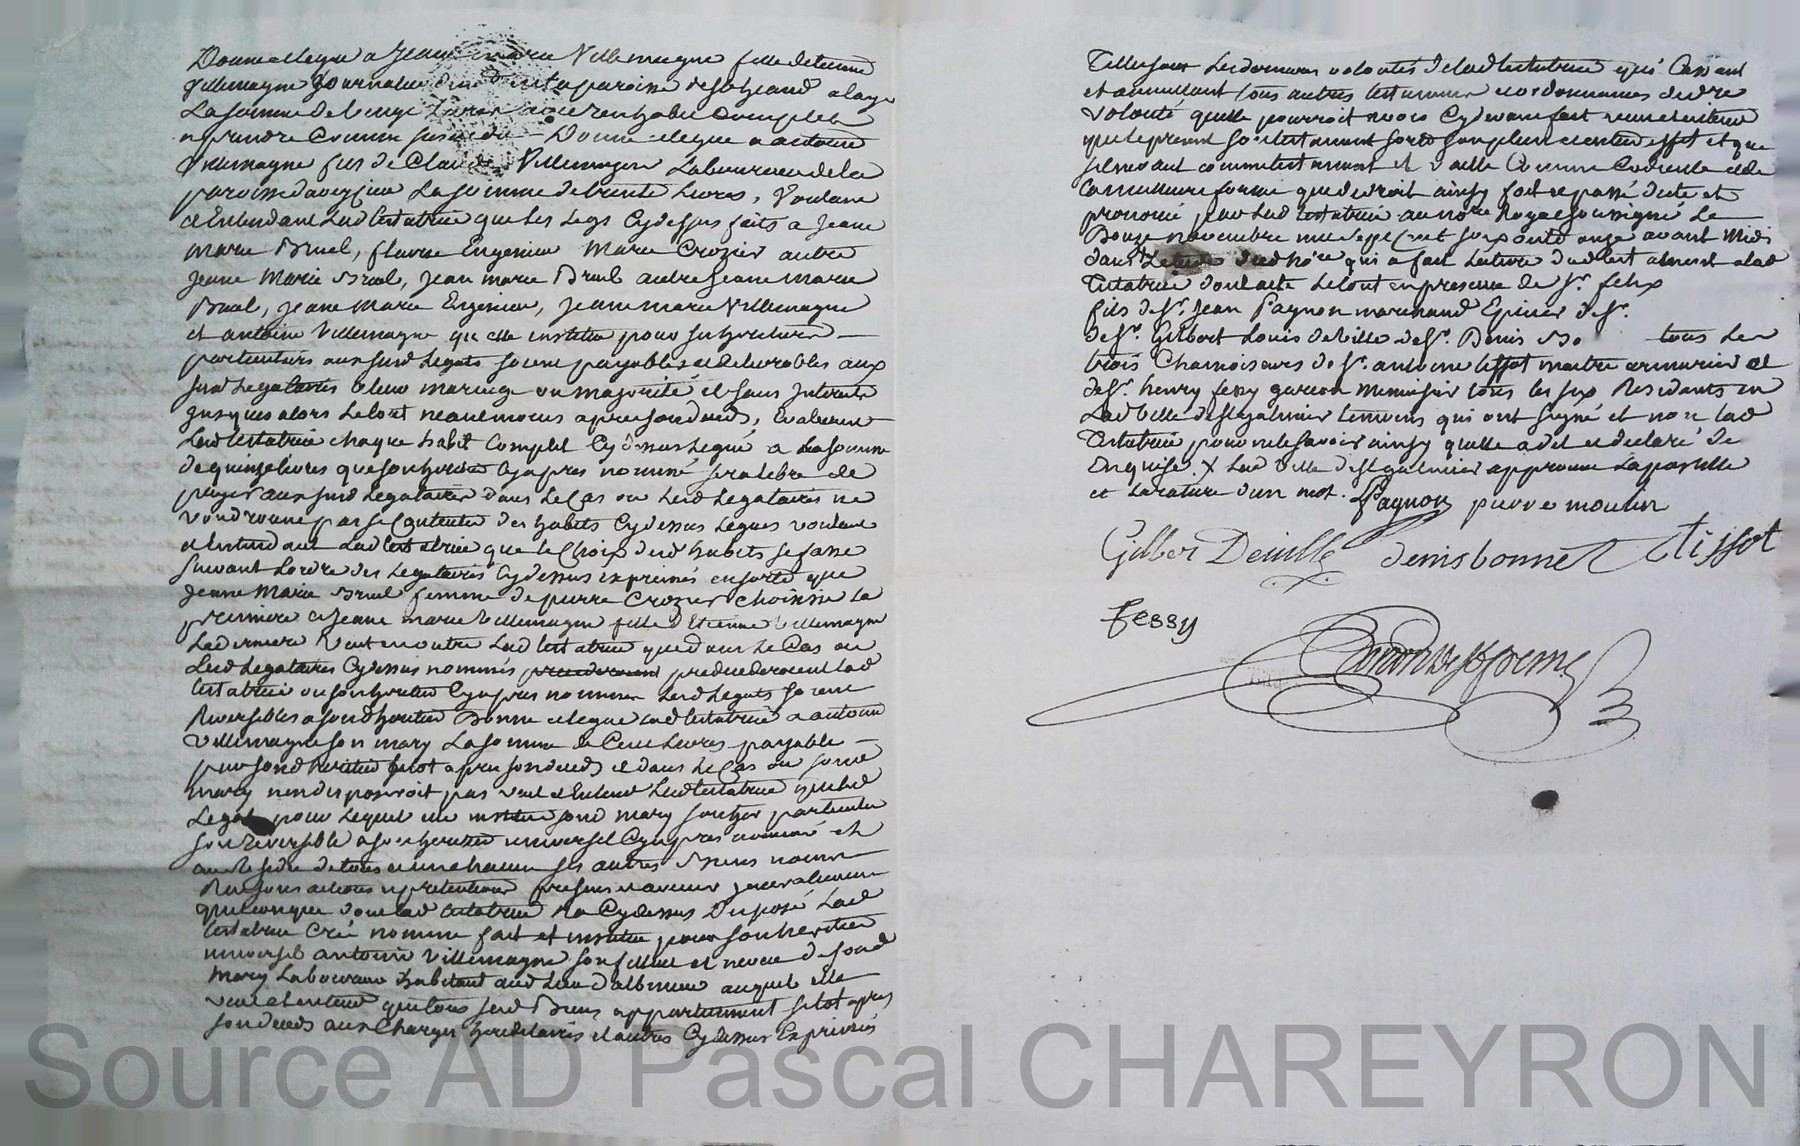 Donne et legue a Jeanne marie Villemagne fille detienne
Villemagne Journalier paroisse
La somme de Livres habit Complet
a prendre Comme susd Donne et legue a antoine
Villemagne fils de Claude Villemagne Laboureur de la
paroisse daveizieu La somme de trente Livres, Voulant
et Entendant Lad testatrice que Les Legs Cydessus faits a Jeane
marie Bruel, fleurie Engenieu Marie Crozier autre
Jeane Marie Bruel, Jean marie Bruel autre Jeane marie
Bruel, Jeane Marie Engenieu, Jeane marie Villemagne
et antoine Villemagne qu elle institue pour ses heritiers
particuliers auxsusd Legats soient payables et delivrables aux
susd Legataires a leur mariage ou majorité et sans Interets
jusques alors Le tout neanmoins apres son deceds, Evaluant
Lad testatrice chaque habit Complet Cydessus Legué a La somme
de quinze livres que son heritier Cyapres nommé sera libre de
payer aux susd Legataires dans Le Cas ou Lesd Legataires ne
voudroient pas se Contenter des habits Cydessus Legués voulant
et Entendant Lad testatrice que le Choix desd habits se fasse
suivant Lordre des Legataires Cydessus exprimés en sorte que
Jeanne Marie Bruel femme de pierre Crozier choisisse La
premiere et Jeane marie Villemagne fille dEtienne Villemagne
La derniere Veut en outre Lad testatrice que dans Le Cas ou
Lesd Legataires Cydessus nommés predecederoient Lad
testatrice ou son heritier Cyapres nommé Lesd Legats soient
Reversibles a sond heritier Donne et legue Lad testatrice a antoine
Villemagne son mary La somme de Cent Livres payable
par sond heritier sitot apres son deceds et dans Le Cas ou sond
mary nen disposeroit pas veut et Entend Lad testatrice que led
Legat pour Lequel elle institue sond mary son her particulier
soit Reversible a son heritier universel Cyapres nommé et
au Residu de tous et un chacun ses autres Biens noms
Raisons actions et pretentions presens et avenir generalement
quelconques dont Lad testatrice na Cydessus Disposé Lad
testatrice Crée nomme fait et institue pour son heritier
universel antoine Villemagne son filleul et neveu de sond
Mary Laboureur habitant aud Lieu dalbuzieu auquel Elle
veut et entend que tous sesd Biens appartiennent sitot apres
son deceds aux Charges hereditaires et autres Cydessus Exprimés
Telles sont Les dernieres volontés de Lad testatrice qui Cassant
et annullant tous autres testamens et ordonnances de dre
volonté quelle pourroit avoir Cydevant fait veut et entend
que le present son testament sorte son plein et entier effet et que
sil ne vaut comme testament il vaille Comme Codicile et de
La meilleure forme que de droit ainsy fait et passé dicté et
prononcé par Lad testatrice au nore Royal soussigné Le
Douze novembre mil sept cent soixante onze avant Midi
dans Letude dud Nore qui a fait Lecture dud testament a lad
Testatrice dont acte Le tout en presence de Sr. felix
fils de Sr. Jean Pagnon marchand Epicier de Sr.
de Sr. Gilbert Louis deville de Sr. Denis Bo tous les
trois Chamoiseurs de Sr. antoine tissot maitre armurier et
de Sr. henry fessy garcon Menuisier tous les six Residants en
Lad Ville de St galmier temoins qui ont signé et non lad
Testatrice pour ne le savoir ainsy quelle a dit et declaré de
Enquise. X Lad Ville de St galmier approuvé Lapostille
et La rature dun mot. Pagnon pierre moulin
Gilber Deville denis bonnet A tissot
fessy